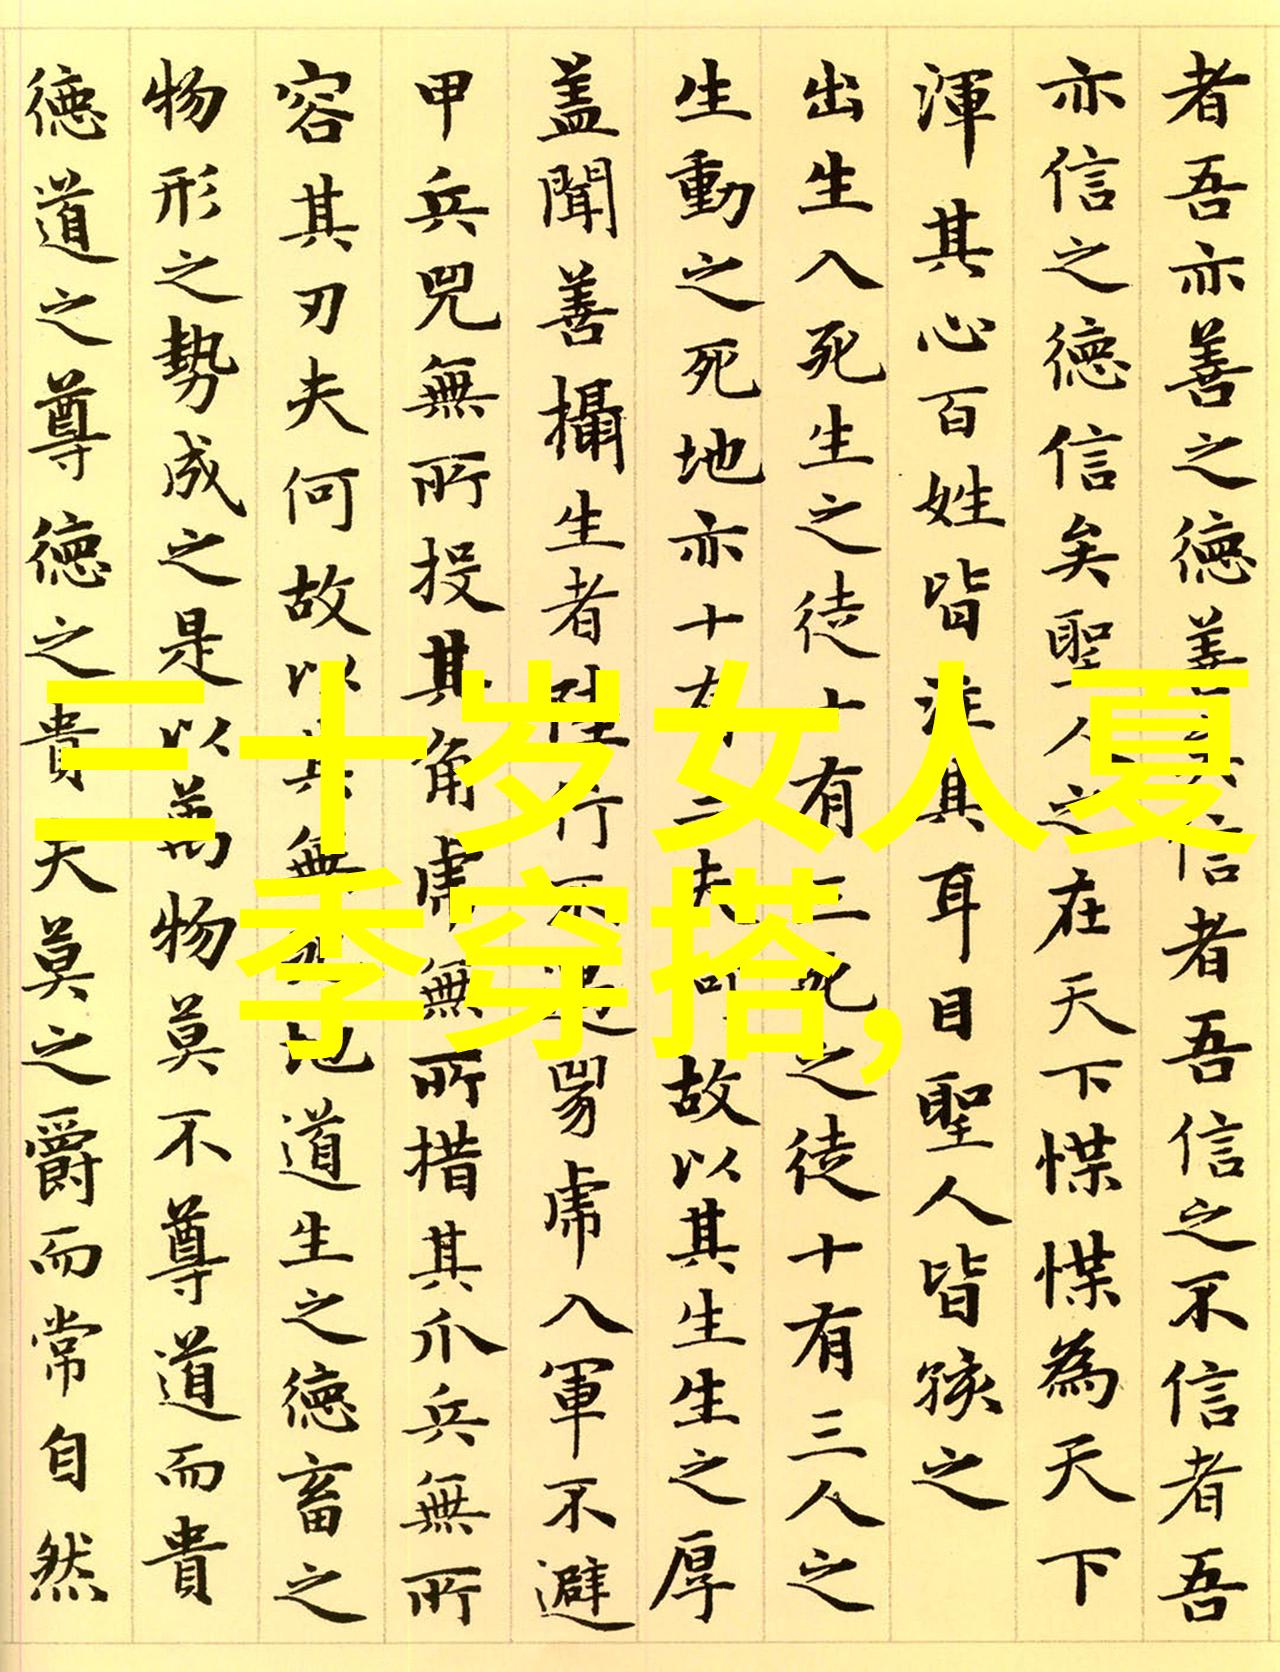 三十岁女人夏
季穿搭,
者吾亦善之德善矣信者吾信之不信者吾
亦信之德信矣聖人之在天下惵惵為天下
渾其心百姓皆注其耳目聖人皆孩之
出生入死生之徒十有三死之徒十有三人之
生動之死地亦十有三夫何故以其生生之厚
盖聞善攝生者陸行不遇兕虎入軍不避
甲兵兕無所投其角虎無所措其爪兵無所
容其刃夫何故以其無死地道生之德畜之
物形之勢成之是以萬物莫不尊道而貴
德道之尊德之貴夫莫之爵而常自然